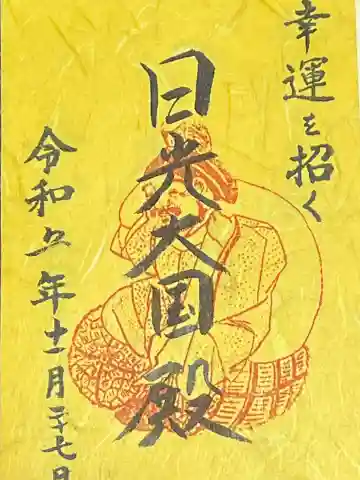 幸運を招く
日光大国殿
令和五年十一月二十七日